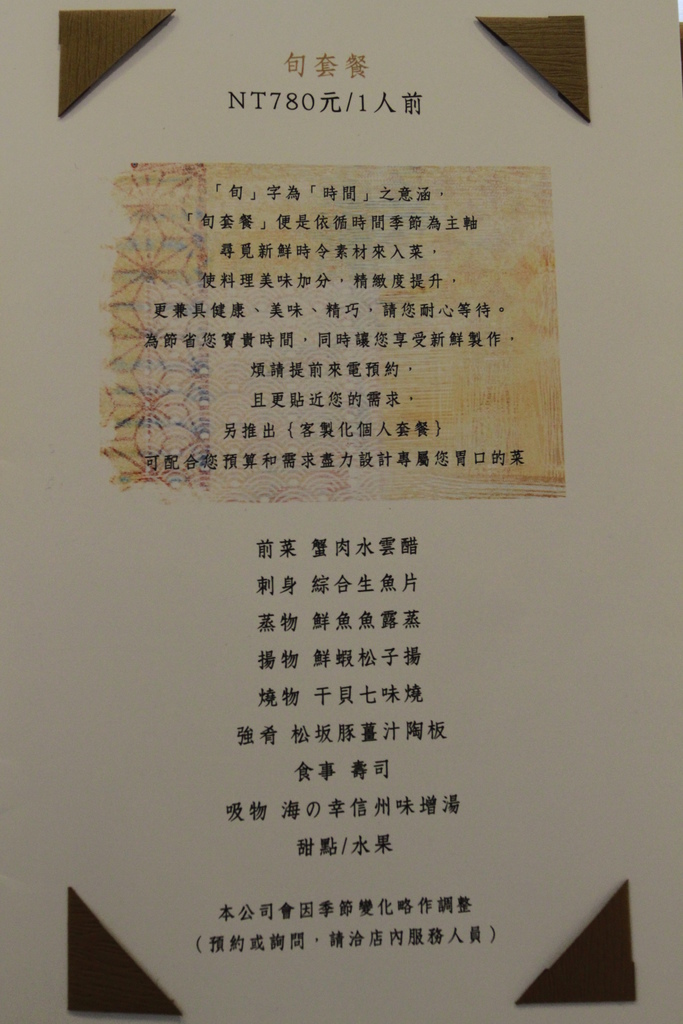 旬套餐
NT780元/1人前
「旬」字為「時間」之意涵，
「旬套餐」便是依循時間季節為主軸
尋覓新鮮時令素材來入菜，
使料理美味加分，精緻度提升，
更兼具健康、美味、精巧，請您耐心等待。
為節省您寶貴時間，同時讓您享受新鮮製作，
煩請提前來電預約，
且更貼近您的需求，
另推出{客製化個人套餐}
可配合您預算和需求盡力設計專屬您胃口的菜
前菜 蟹肉水雲醋
刺身 綜合生魚片
蒸物 鮮魚魚露蒸
揚物 鮮蝦松子揚
燒物 干貝七味燒
強肴 松坂豚薑汁陶板
食事 壽司
吸物 海の幸信州味增湯
甜點/水果
本公司會因季節變化略作調整
(預約或詢問，請洽店內服務人員)